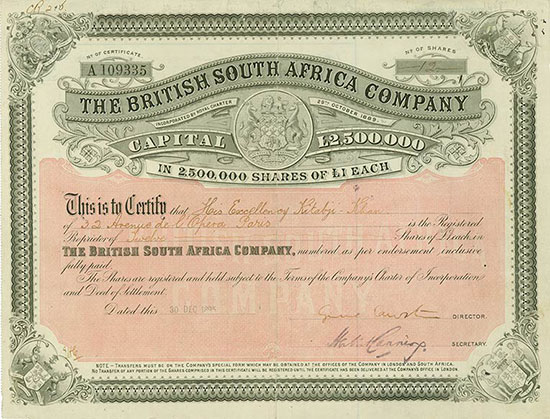 No OF CERTIFICATE
A 109335
No OF SHARES
12
THE BRITISH SOUTH AFRICA COMPANY
INCORPORATED BY ROYAL CHARTER 29TH OCTOBER 1889.
CAPITAL £2,500,000
IN 2,500,000 SHARES OF £1 EACH
This is to Certify that His Excellency Kitabji Khan
of 32 Avenue de l'Opera Paris is the Registered
Proprietor of Twelve Shares of £1 each in
THE BRITISH SOUTH AFRICA COMPANY, numbered as per endorsement inclusive
fully paid.
The Shares are registered and held subject to the Terms of the Company's Charter of Incorporation
and Deed of Settlement.
Dated this 30 DEC
DIRECTOR.
SECRETARY.
NOTE – TRANSFERS MUST BE ON THE COMPANY'S SPECIAL FORM WHICH MAY BE OBTAINED AT THE OFFICES OF THE COMPANY IN LONDON AND SOUTH AFRICA.
NO TRANSFER OF ANY PORTION OF THE SHARES COMPRISED IN THIS CERTIFICATE WILL BE REGISTERED UNTIL THE CERTIFICATE HAS BEEN DELIVERED AT THE COMPANY'S OFFICE IN LONDON.